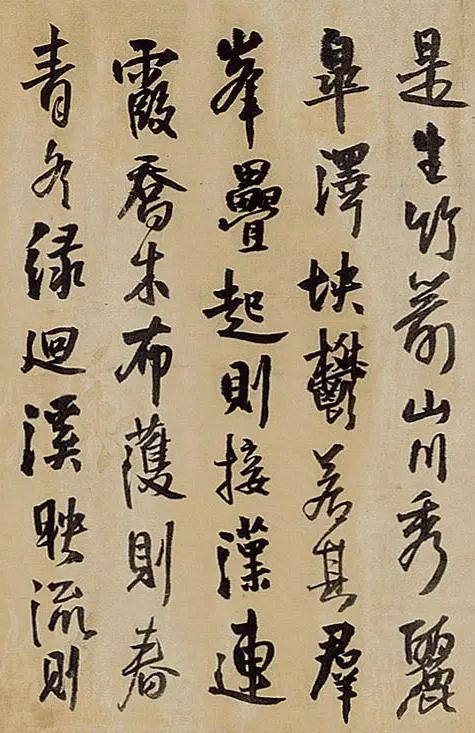 是生竹箭山川秀麗
皐澤坱鬱若其群
峯疊起則接漢連
霞喬木布護則春
青冬緑迴溪映流則